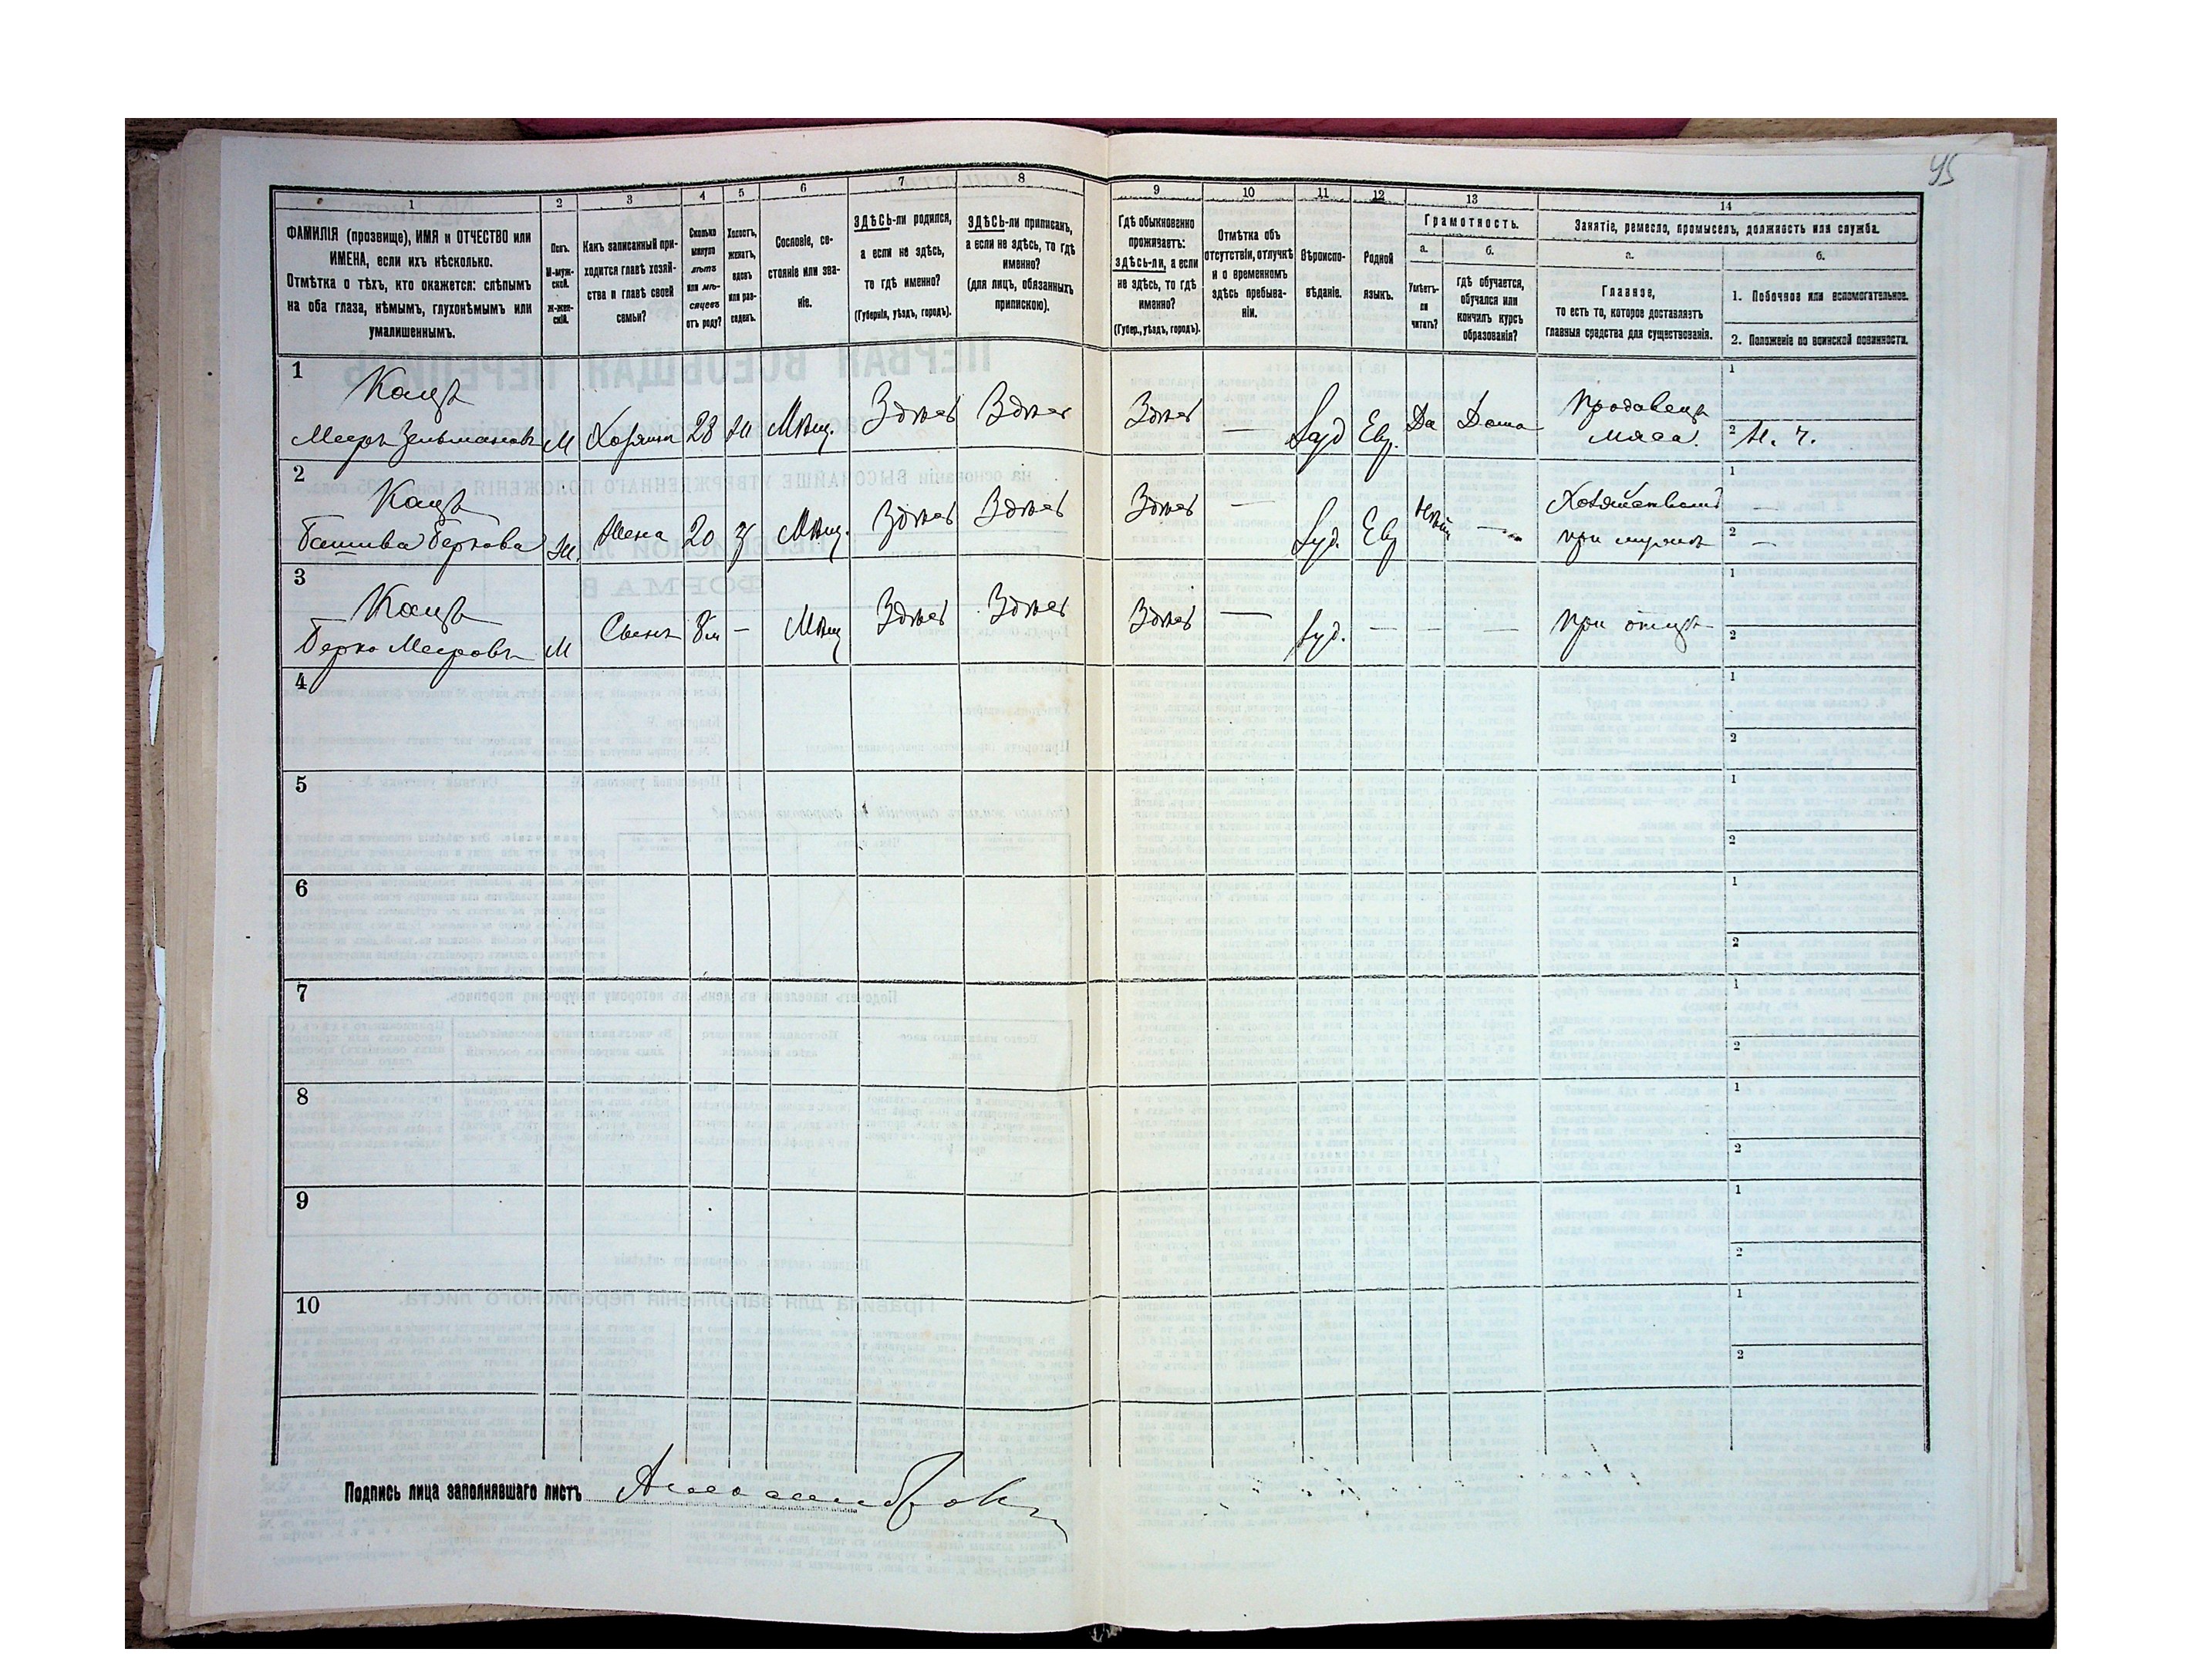 45
1 2 3 4 5 6 7 8 9 10 11 12 13 14
ФАМИЛІЯ (прозвище), ИМЯ и ОТЧЕСТВО или
ИМЕНА, если ихъ нѣсколько.
Отмѣтка о тѣхъ, кто окажется: слѣпымъ
на оба глаза, нѣмымъ, глухонѣмымъ или
умалишеннымъ.
Полъ.
М-муж-
ской.
ж-жен-
скій.
Какъ записанный при-
ходится главѣ хозяй-
ства и главѣ своей
семьи?
Сколько
минуло
лѣтъ
или мѣ-
сяцевъ
отъ роду?
Холостъ,
женатъ,
вдовъ
или раз-
веденъ.
Сословіе, со-
стояніе или зва-
ніе.
ЗДѢСЬ-ли родился,
а если не здѣсь,
то гдѣ именно?
(Губернія, уѣздъ, городъ).
ЗДѢСЬ-ли приписанъ,
а если не здѣсь, то гдѣ
именно?
(для лицъ, обязанныхъ
припискою).
Гдѣ обыкновенно
проживаетъ:
здѣсь-ли, а если
не здѣсь, то гдѣ
именно?
(Губер., уѣздъ, городъ).
Отмѣтка объ
отсутствіи, отлучкѣ
и о временномъ
здѣсь пребыва-
ніи.
Вѣроиспо-
вѣданіе.
Родной
языкъ.
Грамотность.
а. б.
Умѣетъ-
ли
читать?
Гдѣ обучается,
обучался или
кончилъ курсъ
образованія?
Занятіе, ремесло, промыселъ, должность или служба.
а. б.
Главное,
то есть то, которое доставляетъ
главныя средства для существованія.
1. Побочное или вспомогательное.
2. Положеніе по воинской повинности.
1 Кацъ
Мееръ Зельмановъ М Хозяинъ 28 Ж Мѣщ. Здѣсь Здѣсь Здѣсь — Іуд Евр. Да Дома Продавецъ
мяса. 1
2 Н. ч.
2 Кацъ
Башива Беркова Ж Жена 20 З Мѣщ. Здѣсь Здѣсь Здѣсь — Іуд. Евр Нѣтъ — Хозяйствомъ
при мужѣ 1 —
2 —
3 Кацъ
Берко Мееровъ М Сынъ 8м — Мѣщ Здѣсь Здѣсь Здѣсь — Іуд. — — — При отцѣ 1
2
4 1
2
5 1
2
6 1
2
7 1
2
8 1
2
9 1
2
10 1
2
Подпись лица заполнявшаго листъ